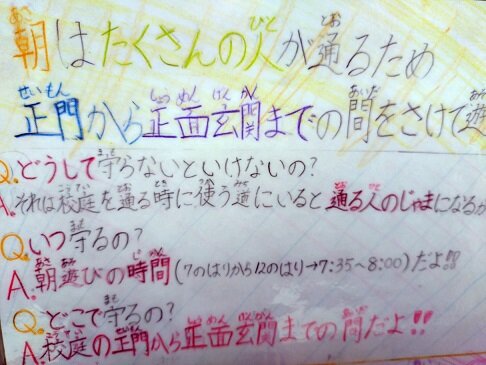 朝はたくさんの人が通るため
正門から正面玄関までの間をさけて遊
Q.どうして守らないといけないの?
A.それは校庭を通る時に使う道にいると通る人のじゃまになるか
Q.いつ守るの?
A.朝遊びの時間(7のはりから12のはり→7:35~8:00)だよ!!
Q.どこで守るの?
A.校庭の正門から正面玄関までの間だよ!!